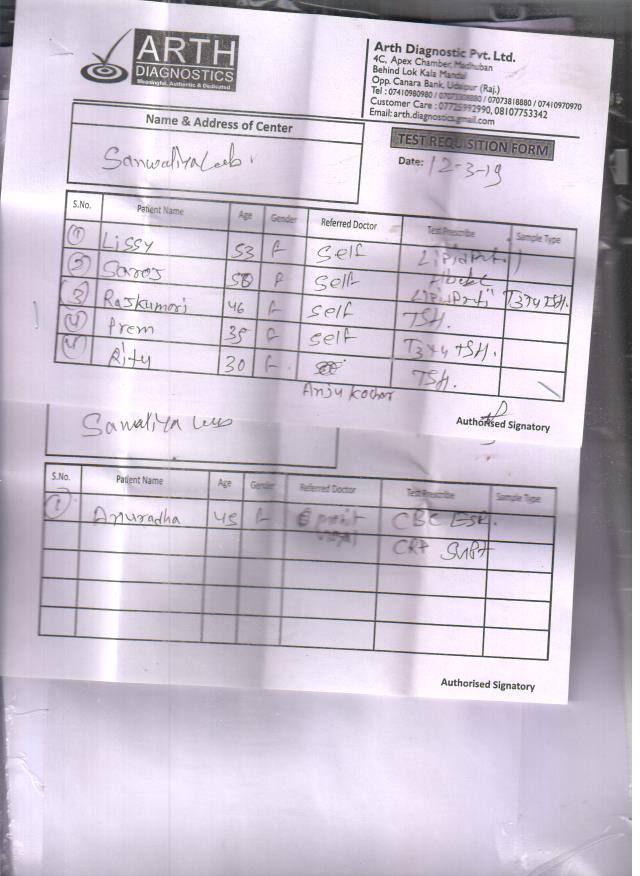 ARTH
DIAGNOSTICS
Meaningful, Authentic & Dedicated
Arth Diagnostic Pvt. Ltd.
4C, Apex Chamber, Madhuban
Behind Lok Kala Mandal
Opp. Canara Bank, Udaipur (Raj.)
Tel : 07410980980 / / 07073818880 / 07410970970
Customer Care : 07725992990, 08107753342
Email: arth.diagnostics@gmail.com
Name & Address of Center
TEST REQUISITION FORM
Sanwaliya Lab
Date: 12-3-19
S.No. Patient Name Age Gender Referred Doctor Test Prescribe Sample Type
1 Lissy 53 F self Lipid Prf.
2 Saroj 58 F self
Lipid Prfi T3T4 TSH.
3 Rajkumari 46 F self TSH.
4 Prem 35 F self T3T4 TSH.
4 Rity 30 F. TSH.
Anju Kochar
Authorised Signatory
Sawaliya Lab
S.No. Patient Name Age Gender Referred Doctor Test Prescribe Sample Type
1 Anuradha 45 F CBC ESR.
CRP
Authorised Signatory